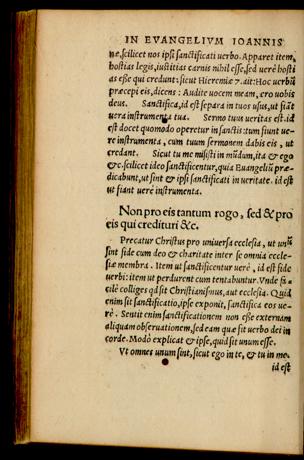 IN EVANGELIVM IOANNIS
næ, scilicet nos ipsi sanctificati verbo. Apparet item,
hostias legis, iustitias carnis nihil esse, sed verè hosti
as esse qui credunt: sicut Hieremiæ 7. ait: Hoc verbũ
præcepi eis, dicens: Audite vocem meam, ero vobis
deus. Sanctifica, id est separa in tuos usus, ut fiãt
vera instrumenta tua. Sermo tuus veritas est. id
est docet quomodo operetur in sanctis: tum fiunt ve-
re instrumenta, cum tuum sermonem dabis eis, ut
credant. Sicut tu me misisti in mũdum, ita & ego
&c. scilicet ideo sanctificentur, quia Euangeliũ præ-
dicabunt, ut sint & ipsi sanctificati in veritate. id est
ut fiant verè instrumenta.
Non pro eis tantum rogo, sed & pro
eis qui credituri &c.
Precatur Christus pro universa ecclesia, ut unũ
sint fide cum deo & charitate inter se omnia eccle-
siæ membra. Item ut sanctificentur verè, id est fide
verbi: item ut perdurent cum tentabuntur. Vnde fa-
cilè colliges qd sit Christianismus, aut ecclesia. Quid
enim sit sanctificatio, ipse exponit, sanctifica eos ve-
rè. Sentit enim sanctificationem non esse externam
aliquam observationem, sed eam quæ sit verbo dei in
corde. Modò explicat & ipse, quid sit unum esse.
Vt omnes unum sint, sicut ego in te, & tu in me.
id est